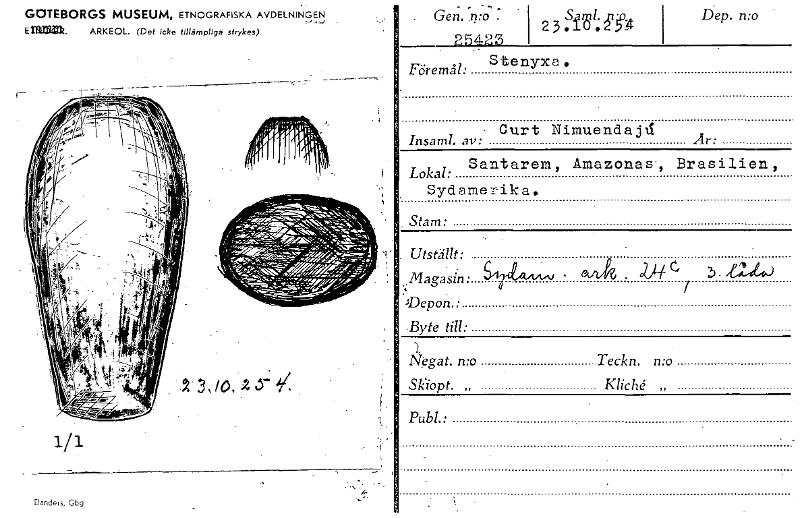 GÖTEBORGS MUSEUM, ETNOGRAFISKA AVDELNINGEN
ARKEOL. (Det icke tillämpliga strykes)
23.10.254.
1/1
Elanders, Gbg
Gen. n:o Saml. n:o Dep. n:o
25423 23.10.254
Föremål: Stenyxa.
Insaml. av: Curt Nimuendajú År:
Lokal: Santarem, Amazonas, Brasilien,
Sydamerika.
Stam:
Utställt:
Magasin: Sydam. ark. 24c, 3. låda
Depon.:
Byte till:
Negat. n:o Teckn. n:o
Skiopt. „ Kliché „
Publ.: